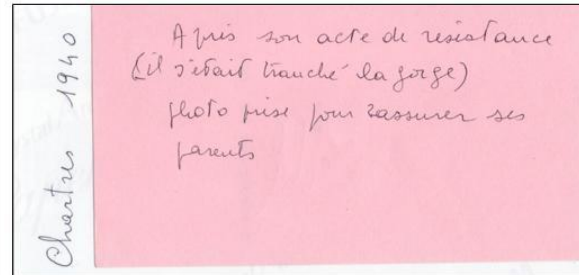 Chartres 1940
Après son acte de résistance
(il s'était tranché la gorge)
photo prise pour rassurer ses
parents